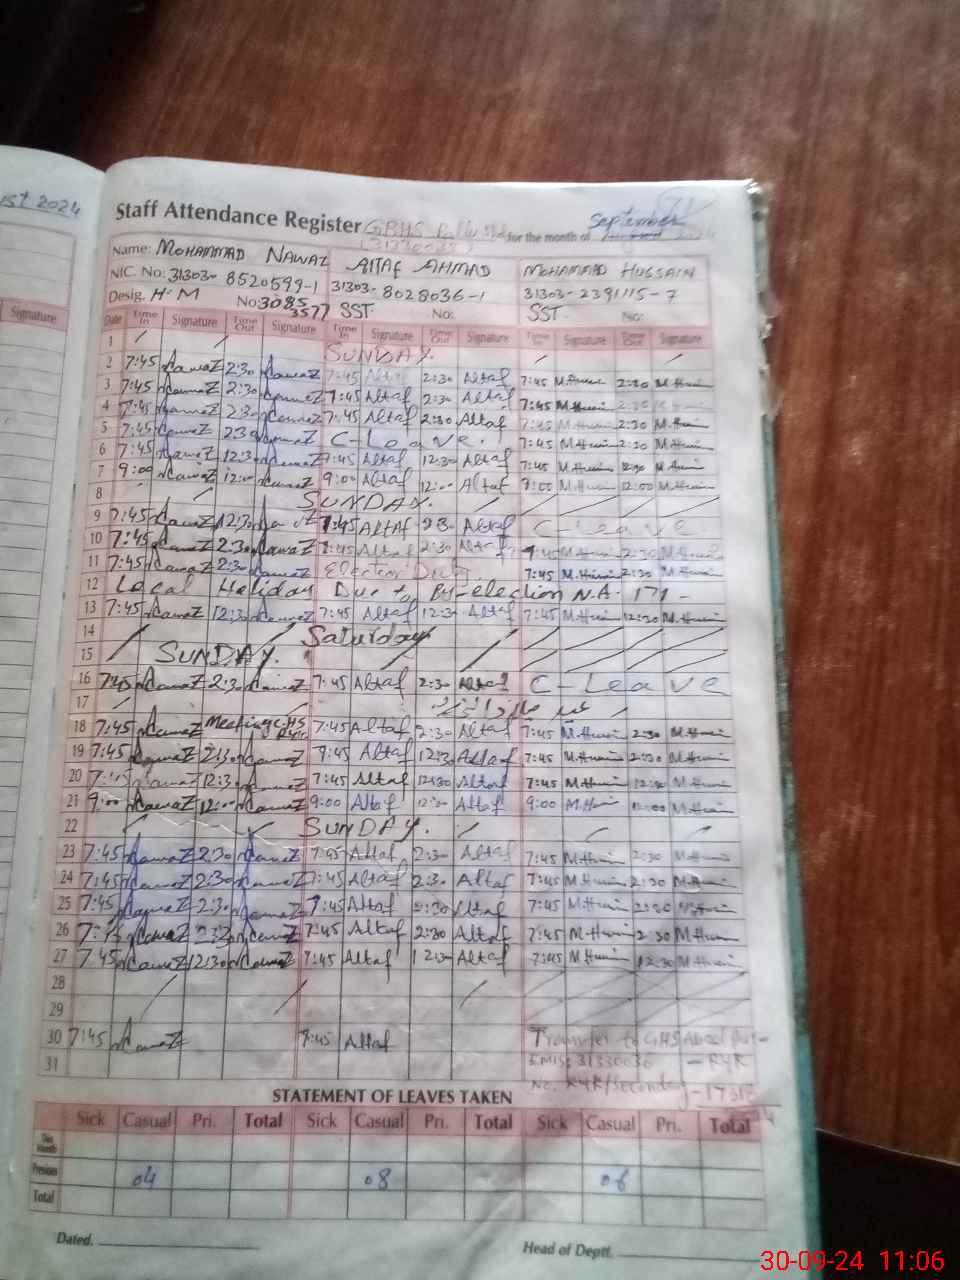 ust 2024
Signature
Staff Attendance Register GBHS for the month of September 2024
Name: MOHAMMAD NAWAZ ALTAF AHMAD MOHAMMAD HUSSAIN
NIC. No: 31303-8520599-1 31303-8028036-1 31303-2391115-7
Desig. H.M No: 30853577 SST. No: SST. No:
Date Time In Signature Time Out Signature Time In Signature Time Out Signature Time In Signature Time Out Signature
1 SUNDAY.
2 7:45 Nawaz 2:30 Nawaz 7:45 Altaf 2:30 Altaf 7:45 M.Hussain 2:30 M.Hussain
3 7:45 Nawaz 2:30 Nawaz 7:45 Altaf 2:30 Altaf 7:45 M.Hussain 2:30 M.Hussain
4 7:45 Nawaz 2:30 Nawaz 7:45 Altaf 2:30 Altaf 7:45 M.Hussain 2:30 M.Hussain
5 7:45 Nawaz 2:30 Nawaz C-Leave. 7:45 M.Hussain 2:30 M.Hussain
6 7:45 Nawaz 12:30 Nawaz 7:45 Altaf 12:30 Altaf 7:45 M.Hussain 12:30 M.Hussain
7 9:00 Nawaz 12:00 Nawaz 9:00 Altaf 12:00 Altaf 9:00 M.Hussain 12:00 M.Hussain
8 SUNDAY.
9 7:45 Nawaz 2:30 Nawaz 7:45 Altaf 2:30 Altaf C-Leave
10 7:45 Nawaz 2:30 Nawaz 7:45 Altaf 2:30 Altaf 7:45 M.Hussain 2:30 M.Hussain
11 7:45 Nawaz 2:30 Nawaz Election Duty. 7:45 M.Hussain 2:30 M.Hussain
12 Local Holiday Due to By-election N.A. 171 -
13 7:45 Nawaz 12:30 Nawaz 7:45 Altaf 12:30 Altaf 7:45 M.Hussain 12:30 M.Hussain
14 Saturday
15 SUNDAY.
16 7:45 Nawaz 2:30 Nawaz 7:45 Altaf 2:30 Altaf C-Leave
17 عید میلادالنبی
18 7:45 Nawaz Meeting GHS 7:45 Altaf 2:30 Altaf 7:45 M.Hussain 2:30 M.Hussain
19 7:45 Nawaz 2:30 Nawaz 7:45 Altaf 12:30 Altaf 7:45 M.Hussain 2:30 M.Hussain
20 7:45 Nawaz 12:30 Nawaz 7:45 Altaf 12:30 Altaf 7:45 M.Hussain 12:30 M.Hussain
21 9:00 Nawaz 12:00 Nawaz 9:00 Altaf 12:00 Altaf 9:00 M.Hussain 12:00 M.Hussain
22 SUNDAY.
23 7:45 Nawaz 2:30 Nawaz 7:45 Altaf 2:30 Altaf 7:45 M.Hussain 2:30 M.Hussain
24 7:45 Nawaz 2:30 Nawaz 7:45 Altaf 2:30 Altaf 7:45 M.Hussain 2:30 M.Hussain
25 7:45 Nawaz 2:30 Nawaz 7:45 Altaf 2:30 Altaf 7:45 M.Hussain 2:30 M.Hussain
26 7:45 Nawaz 2:30 Nawaz 7:45 Altaf 2:30 Altaf 7:45 M.Hussain 2:30 M.Hussain
27 7:45 Nawaz 12:30 Nawaz 7:45 Altaf 12:30 Altaf 7:45 M.Hussain 12:30 M.Hussain
28
29
30 7:45 Nawaz 7:45 Altaf Transfer to GHS
31 EMIS: 31330036 - RYK
No. RYK/Secondary-
STATEMENT OF LEAVES TAKEN
Sick Casual Pri. Total Sick Casual Pri. Total Sick Casual Pri. Total
This Month
Previous 04 08 06
Total
Dated. Head of Deptt.
30-09-24 11:06